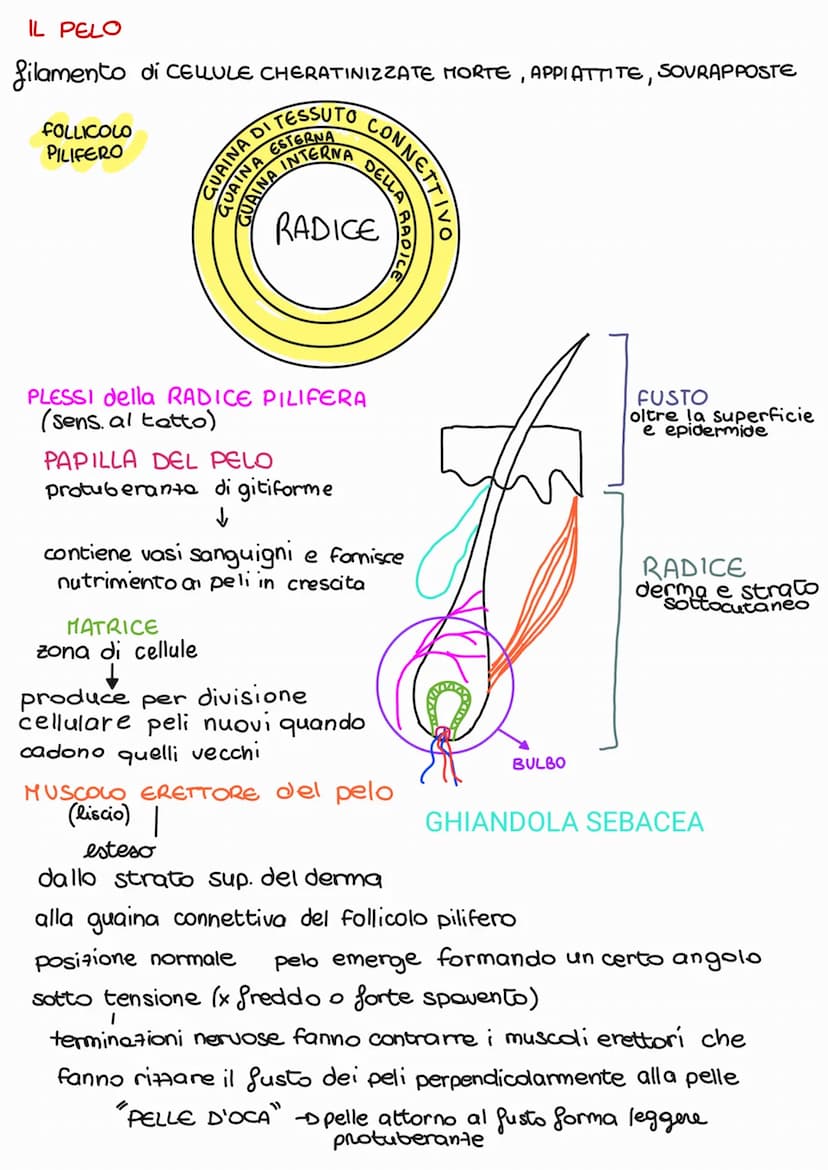 IL PELO
filamento di CELLULE CHERATINIZZATE MORTE, APPIATTITE, SOVRAPPOSTE
FOLLICOLO
PILIFERO
GUAINA DI TESSUTO CONNETTIVO
GUAINA ESTERNA
GUAINA INTERNA DELLA RADICE
RADICE
PLESSI della RADICE PILIFERA
(sens. al tatto)
PAPILLA DEL PELO
protuberanza digitiforme
↓
contiene vasi sanguigni e fornisce
nutrimento ai peli in crescita
MATRICE
zona di cellule
↓
produce per divisione
cellulare peli nuovi quando
cadono quelli vecchi
FUSTO
oltre la superficie
e epidermide
RADICE
derma e strato
sottocutaneo
BULBO
GHIANDOLA SEBACEA
MUSCOLO ERETTORE del pelo
(liscio)
esteso
dallo strato sup. del derma
alla guaina connettiva del follicolo pilifero
posizione normale pelo emerge formando un certo angolo
sotto tensione (x freddo o forte spavento)
terminazioni nervose fanno contrarre i muscoli erettori che
fanno rizzare il fusto dei peli perpendicolarmente alla pelle
"PELLE D'OCA" → pelle attorno al fusto forma leggere
protuberanze